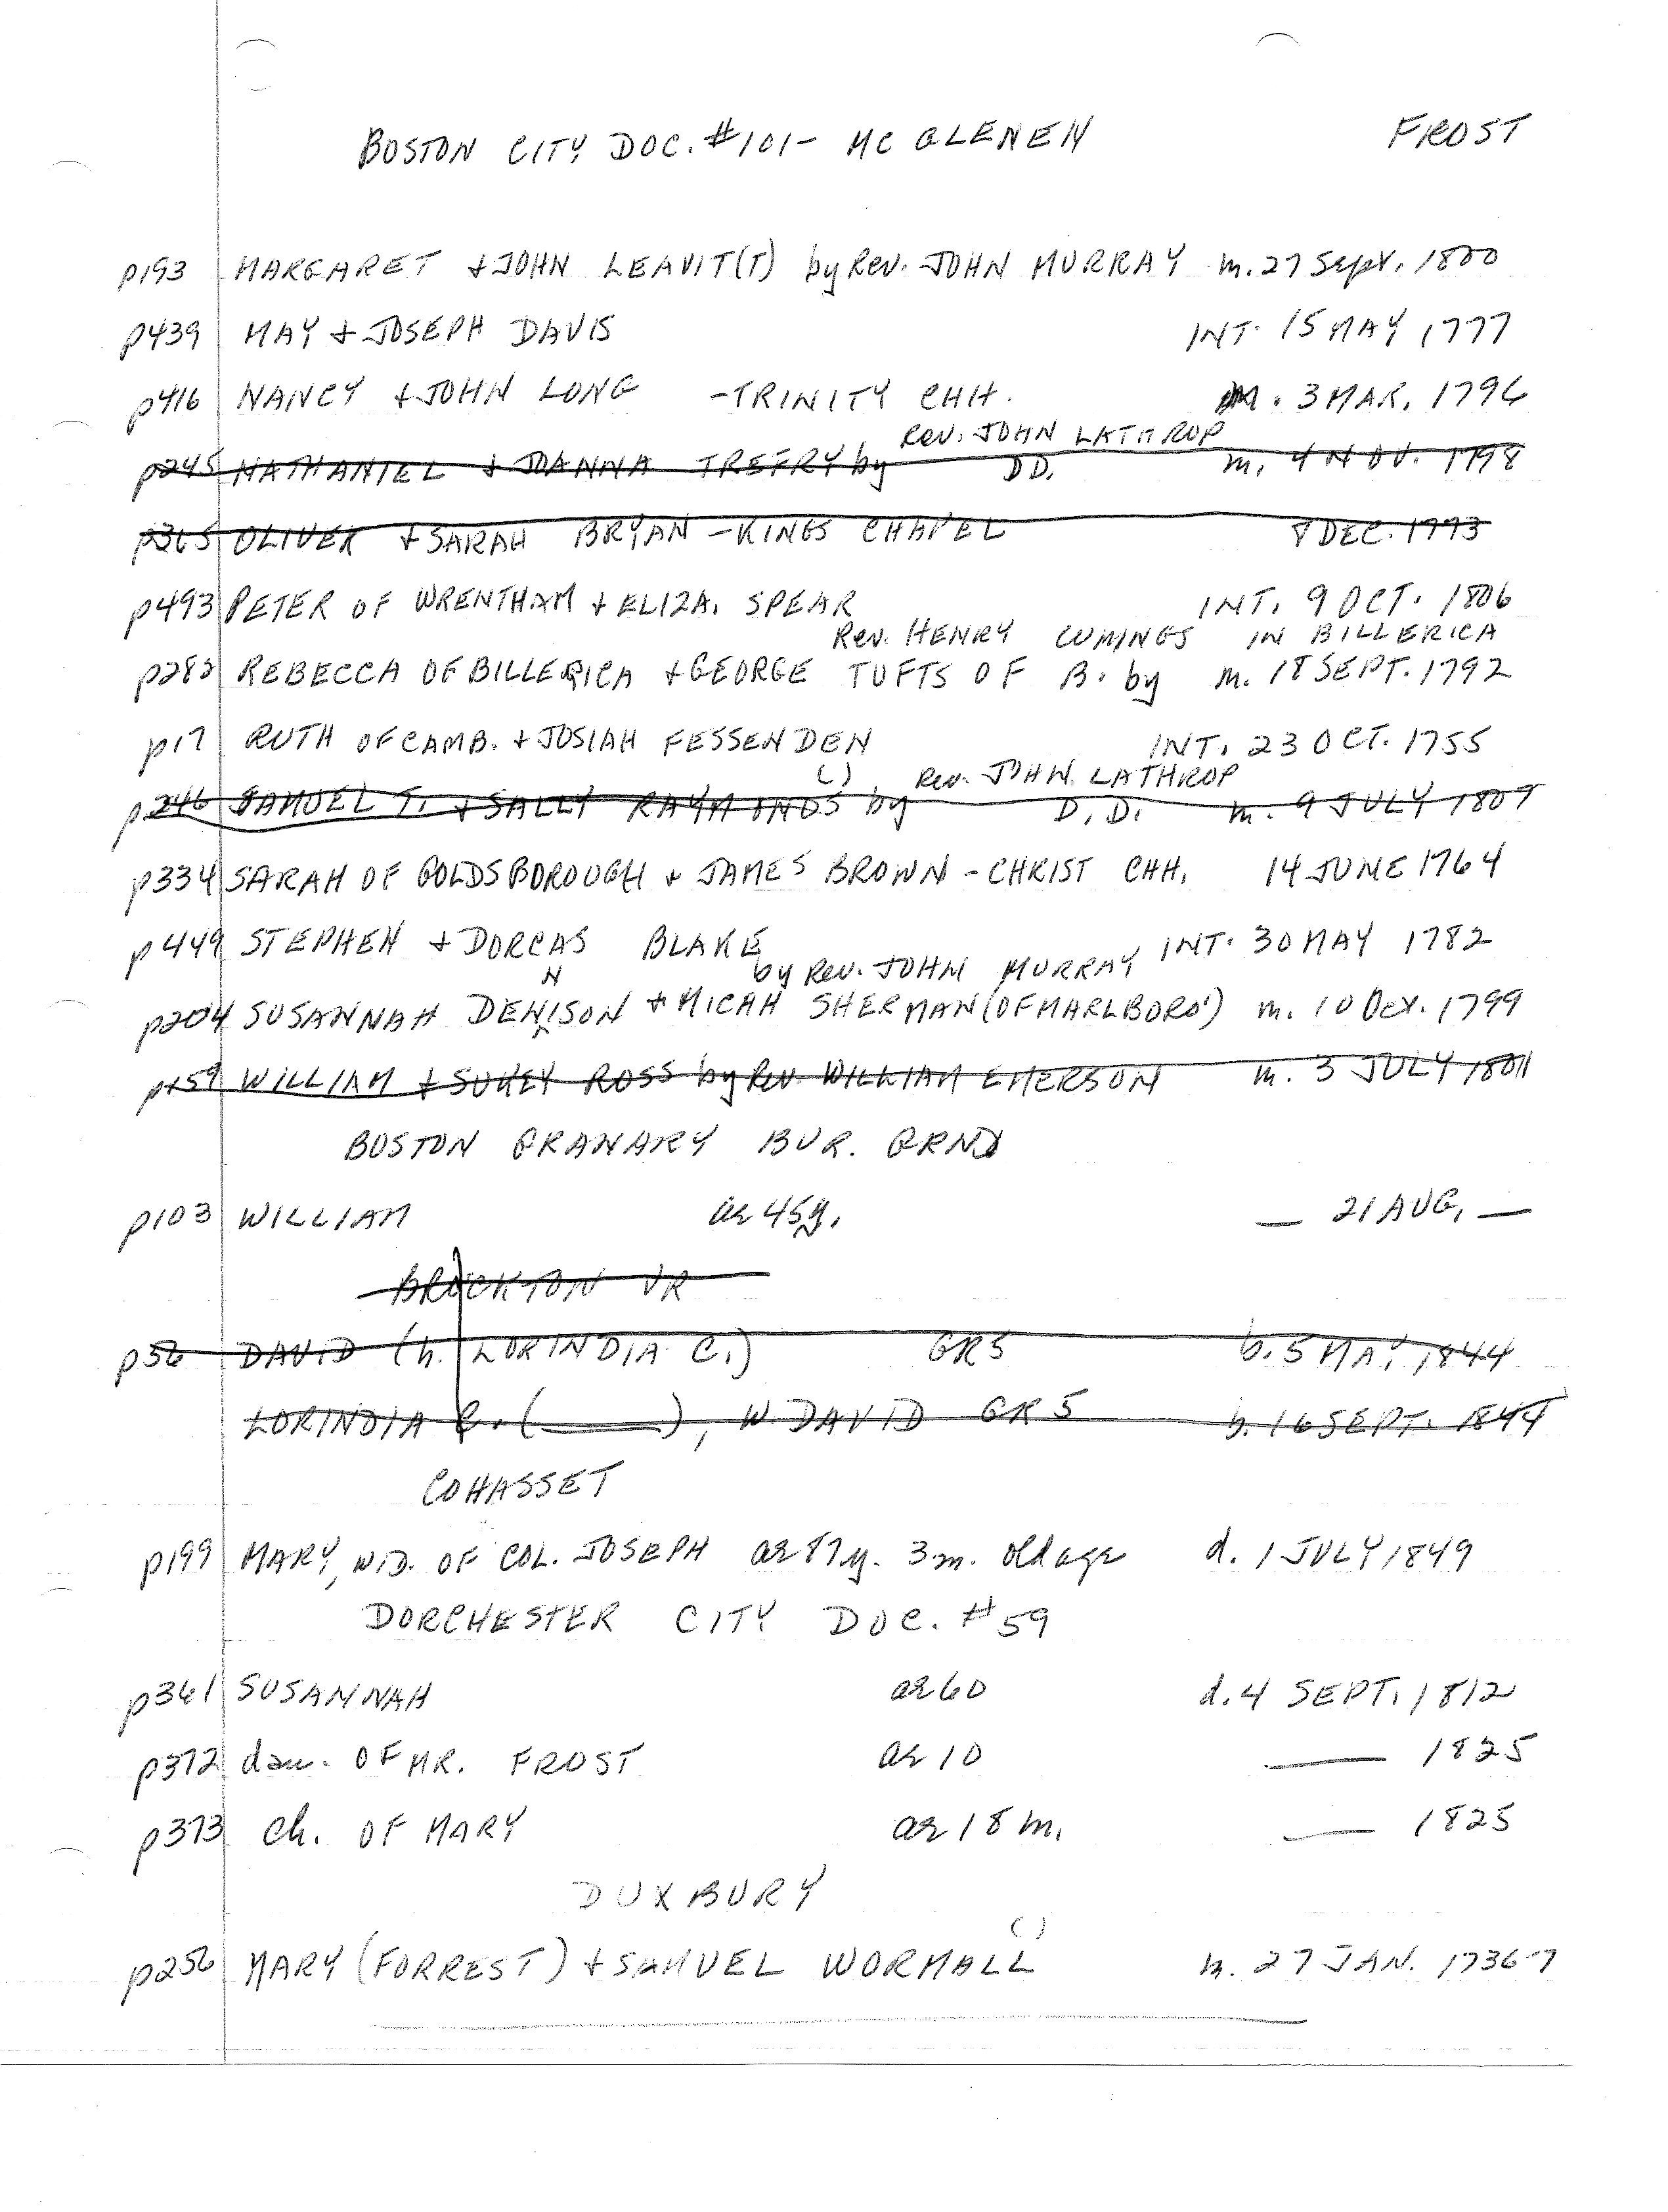 BOSTON CITY DOC. #101- MC GLENEN FROST
p193 MARGARET + JOHN LEAVIT(T) by Rev. JOHN MURRAY m. 27 Sept. 1800
p439 MAY + JOSEPH DAVIS INT. 15 MAY 1777
p416 NANCY + JOHN LONG -TRINITY CHH. m. 3 MAR. 1796
Rev. JOHN LATHROP
p245 NATHANIEL + JOANNA TREFRY by DD. m. 4 NOV. 1798
p365 OLIVER + SARAH BRYAN - KINGS CHAPEL 8 DEC. 1793
p493 PETER OF WRENTHAM + ELIZA. SPEAR INT. 9 OCT. 1806
Rev. HENRY CUMINGS IN BILLERICA
p282 REBECCA OF BILLERICA + GEORGE TUFTS OF B. by m. 18 SEPT. 1792
p17 RUTH OF CAMB. + JOSIAH FESSENDEN INT. 23 OCT. 1755
( ) Rev. JOHN LATHROP
p246 SAMUEL T. + SALLY RAYMONDS by D.D. m. 9 JULY 1809
p334 SARAH OF GOLDSBOROUGH + JAMES BROWN - CHRIST CHH. 14 JUNE 1764
p449 STEPHEN + DORCAS BLAKE INT. 30 MAY 1782
N by Rev. JOHN MURRAY
p204 SUSANNAH DENISON + MICAH SHERMAN (OF MARLBORO') m. 10 Oct. 1799
p159 WILLIAM + SUKEY ROSS by Rev. WILLIAM EMERSON m. 3 JULY 1801
BOSTON GRANARY BUR. GRND
p103 WILLIAM ae 45y. — 21 AUG. —
BROCKTON VR
p56 DAVID (h. LORINDIA C.) GR5 b. 5 MAY 1844
LORINDIA C. (____), W. DAVID GR5 b. 16 SEPT. 1844
COHASSET
p199 MARY, WID. OF COL. JOSEPH ae 87y. 3m. old age d. 1 JULY 1849
DORCHESTER CITY DOC. #59
p361 SUSANNAH ae 60 d. 4 SEPT. 1812
p372 dau. OF MR. FROST ae 10 — 1825
p373 ch. OF MARY ae 18 m. — 1825
DUXBURY
( )
p256 MARY (FORREST) + SAMUEL WORMALL m. 27 JAN. 1736-7